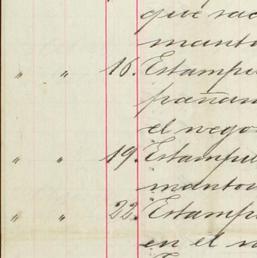 que sac
manto
" " 16. Estampi
pañan
el nego
" " 19. Estampi
manto
" " 22. Estampi
en el n